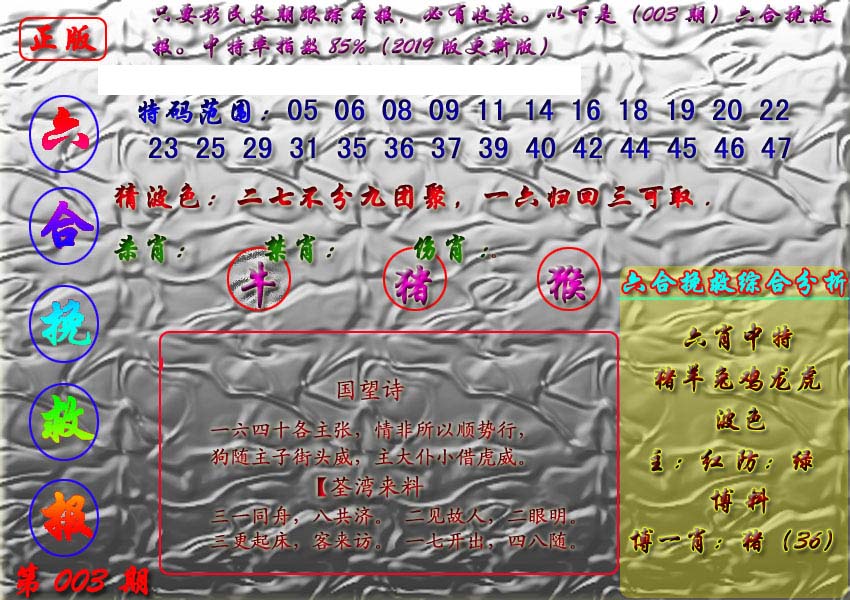 正版
只要彩民长期跟踪本报，必有收获。以下是（003期）六合挽救
报。中特率指数85%（2019版更新版）
六
合
挽
救
报
第003期
特码范围：05 06 08 09 11 14 16 18 19 20 22
23 25 29 31 35 36 37 39 40 42 44 45 46 47
猜波色：二七不分九团聚，一六归回三可取.
杀肖：牛 禁肖：猪 伤肖：猴
国望诗
一六四十各主张，情非所以顺势行，
狗随主子街头威，主大仆小借虎威。
【荃湾来料
三一同舟，八共济。 二见故人，二眼明。
三更起床，客来访。 一七开出，四八随。
六合挽救综合分析
六肖中特
猪羊兔鸡龙虎
波色
主：红防：绿
博料
博一肖：猪（36）